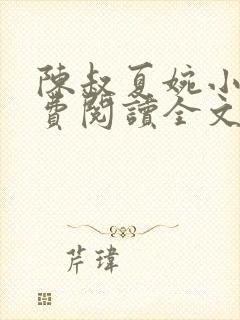 陳叔夏婉小
費閱讀全文
芹瑋